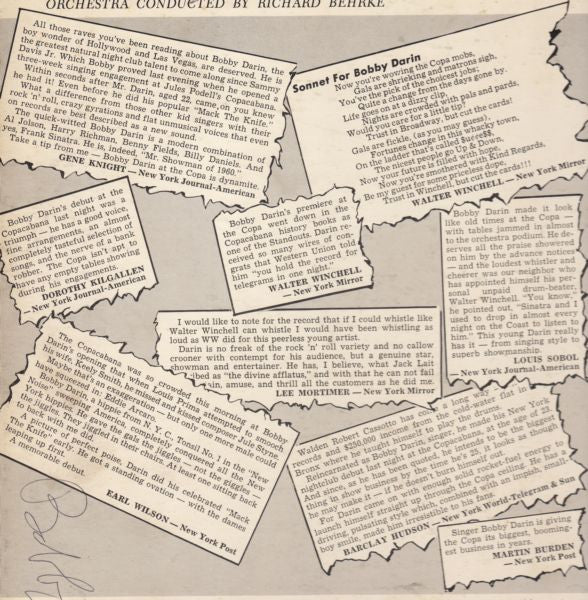 ORCHESTRA CONDUCTED BY RICHARD BEHRKE
All those raves you've been reading about Bobby Darin, the
boy wonder of Hollywood and Las Vegas, are deserved. He is
the greatest natural night club talent to come along since Sammy
Davis Jr. Which Bobby proved last evening when he opened a
three-week singing engagement at Jules Podell's Copacabana.
Within seconds after Mr. Darin, aged 22, came on you knew
he had it! Even before he did his popular "Mack The Knife."
What a difference from those other kid singers with their
rock 'n' roll, crazy gyrations and flat unmusical voices that even
on records are best described as a new sound.
The quick-witted Bobby Darin is a modern combination of
Al Jolson, Harry Richman, Benny Fields, Billy Daniels. And
yes, Frank Sinatra. He is, indeed, "Mr. Showman of 1960."
Take a tip from me — Bobby Darin at the Copa is dynamite.
GENE KNIGHT — New York Journal-American
Sonnet For Bobby Darin
Now you're wowing the Copa mobs,
Gals are shrieking and matrons sigh,
You've the pick of the choicest jobs;
Quite a change from the days gone by.
Life goes on at a dizzy clip,
Nights are crowded with pals and pards,
Would you care for a little tip?
Trust in Broadway, but cut the cards!
Gals are fickle, (as you may guess),
Fortunes change in this whacky town,
On the ladder that's called $ucce$$,
The nicest people go Up & Down.
Now your future is filled with Kind Regards,
Now you're smothered with
Be my guest for some priceless dope,
Trust in Winchell, but cut the cards!!!
WALTER WINCHELL — New York Mirror
Bobby Darin's debut at the
Copacabana last night was a
triumph — he has a good voice,
fine arrangements, an almost
completely tasteful selection of
songs, and the nerve of a bank
robber. The Copa isn't apt to
have any empty tables showing
during his engagements.
DOROTHY KILGALLEN
— New York Journal-American
Bobby Darin's premiere at
the Copa went down in the
Copacabana history books as
one of the Standouts. Darin re-
ceived so many wires of con-
grats that Western Union told
him "you hold the record for
telegrams in one night."
WALTER WINCHELL
— New York Mirror
Bobby Darin made it look
like old times at the Copa —
with tables jammed in almost
to the orchestra podium. He de-
serves all the praise showered
on him by the advance notices
— and the loudest whistler and
cheerer was our neighbor who
has appointed himself his per-
sonal unpaid drum-beater,
Walter Winchell. "You know,"
he pointed out, "Sinatra and I
used to drop in almost every
night on the Coast to listen to
him." This young Darin really
has it — from singing style to
superb showmanship.
LOUIS SOBOL
— New York Journal-American
I would like to note for the record that if I could whistle like
Walter Winchell can whistle I would have been whistling as
loud as WW did for this peerless young artist.
Darin is no freak of the rock 'n' roll variety and no callow
crooner with contempt for his audience, but a genuine star,
showman and entertainer. He has, I believe, what Jack Lait
ibed as "the divine afflatus," and with that he can not fail
in, amuse, and thrill all the customers as he did me.
LEE MORTIMER — New York Mirror
The Copacabana was so crowded this morning at Bobby
Darin's opening that when Louis Prima attempted to smooch
his wife, Keely Smith, he missed and kissed composer Jule Styne.
Maybe that's an exaggeration, but only one more male could
have squeezed in: Eddie Arcaro.
Bobby Darin, a hippie from N. Y. C. Tonsil No. 1 in the "New
Noise" sweeping America, completely conquered all the New
York hippies. He gave the gals the giggles — and the giggles
the gals. They jiggled in their chairs. At least one sitting back
to back with me did.
A picture of perfect poise, Darin did his celebrated "Mack
The Knife" fairly. He got a standing ovation — with the dames
leaping up first.
A memorable debut.
EARL WILSON — New York Post
Walden Robert Cassotto has come a long way —
records and $250,000 income from the cold-water flat in
Bronx where he taught himself to play the drums.
Reincarnated as Bobby Darin, singer, he made his New York
nightclub debut last night at the Copacabana, at the age of 23.
And since, as he has been quoted, he intends to be the biggest
thing in show business by the time he's 25, it looks as though
he may make it — if he doesn't burn himself out.
For Darin came on with enough solid rocket-fuel energy to
launch himself straight up through the Copa ceiling. He has a
driving, pulsating style which, combined with an impish, small-
boy smile, made him irresistible to his fans.
BARCLAY HUDSON — New York World-Telegram & Sun
Singer Bobby Darin is giving
the Copa its biggest, booming-
est business in years.
MARTIN BURDEN
— New York Post